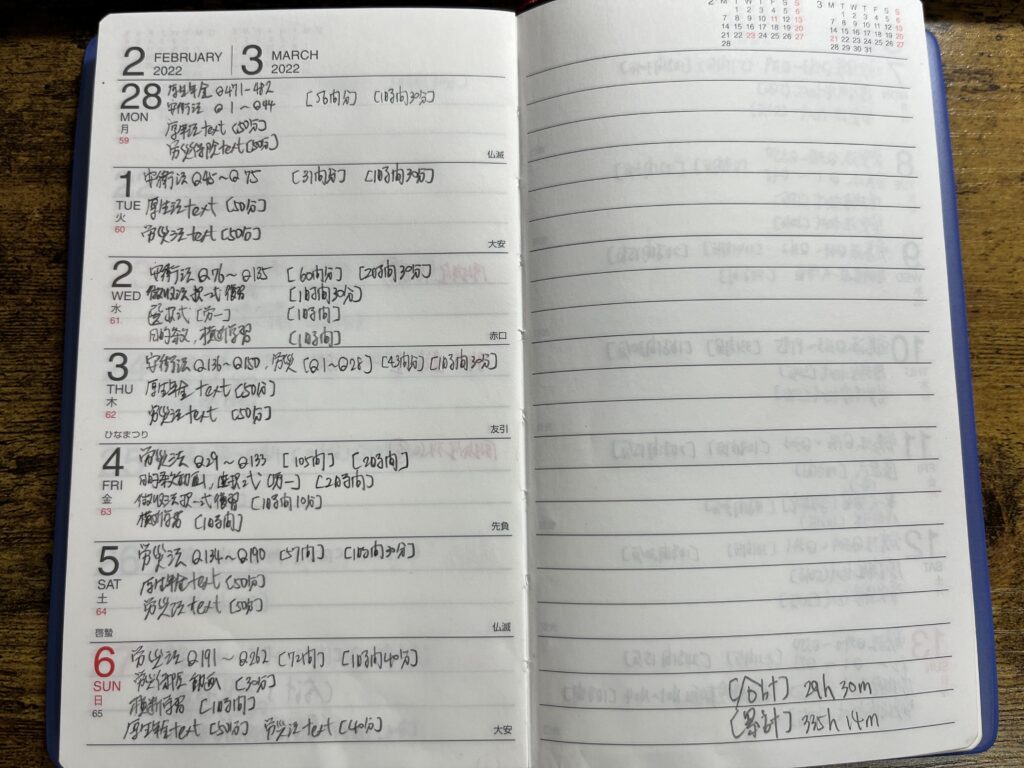 2 FEBRUARY 2022 3 MARCH 2022
28 MON 月 59
厚生年金 Q471-482 [56問分] [1時間30分]
安衛法 Q1~Q44
厚年法text [50分]
労災保険text [50分]
仏滅
1 TUE 火 60
安衛法 Q45~Q75 [31問分] [1時間30分]
厚生法text [50分]
労災法text [50分]
大安
2 WED 水 61
安衛法 Q76~Q135 [60問分] [2時間30分]
徴収法択一式復習 [1時間30分]
選択式 [労一] [1時間]
目的条文、横断学習 [1時間]
赤口
3 THU 木 62
安衛法Q136~Q150、労災 [Q1~Q28] [43問分] [1時間30分]
厚生年金text [50分]
労災法text [50分]
ひなまつり 友引
4 FRI 金 63
労災法 Q29~Q133 [105問] [2時間]
目的条文動画、選択式 [労一] [2時間]
徴収法択一式復習 [1時間10分]
横断学習 [1時間]
先負
5 SAT 土 64
労災法 Q134~Q190 [57問] [1時間30分]
厚生年金text [50分]
労災法text [50分]
啓蟄 仏滅
6 SUN 日 65
労災法 Q191~Q262 [72問] [1時間40分]
動画 [30分]
横断学習 [1時間]
厚生年金text [50分] 労災法text [40分]
大安
2 M T W T F S S
1 2 3 4 5 6
7 8 9 10 11 12 13
14 15 16 17 18 19 20
21 22 23 24 25 26 27
28
3 M T W T F S S
1 2 3 4 5 6
7 8 9 10 11 12 13
14 15 16 17 18 19 20
21 22 23 24 25 26 27
28 29 30 31
[合計] 29h 30m
[累計] 335h 14m